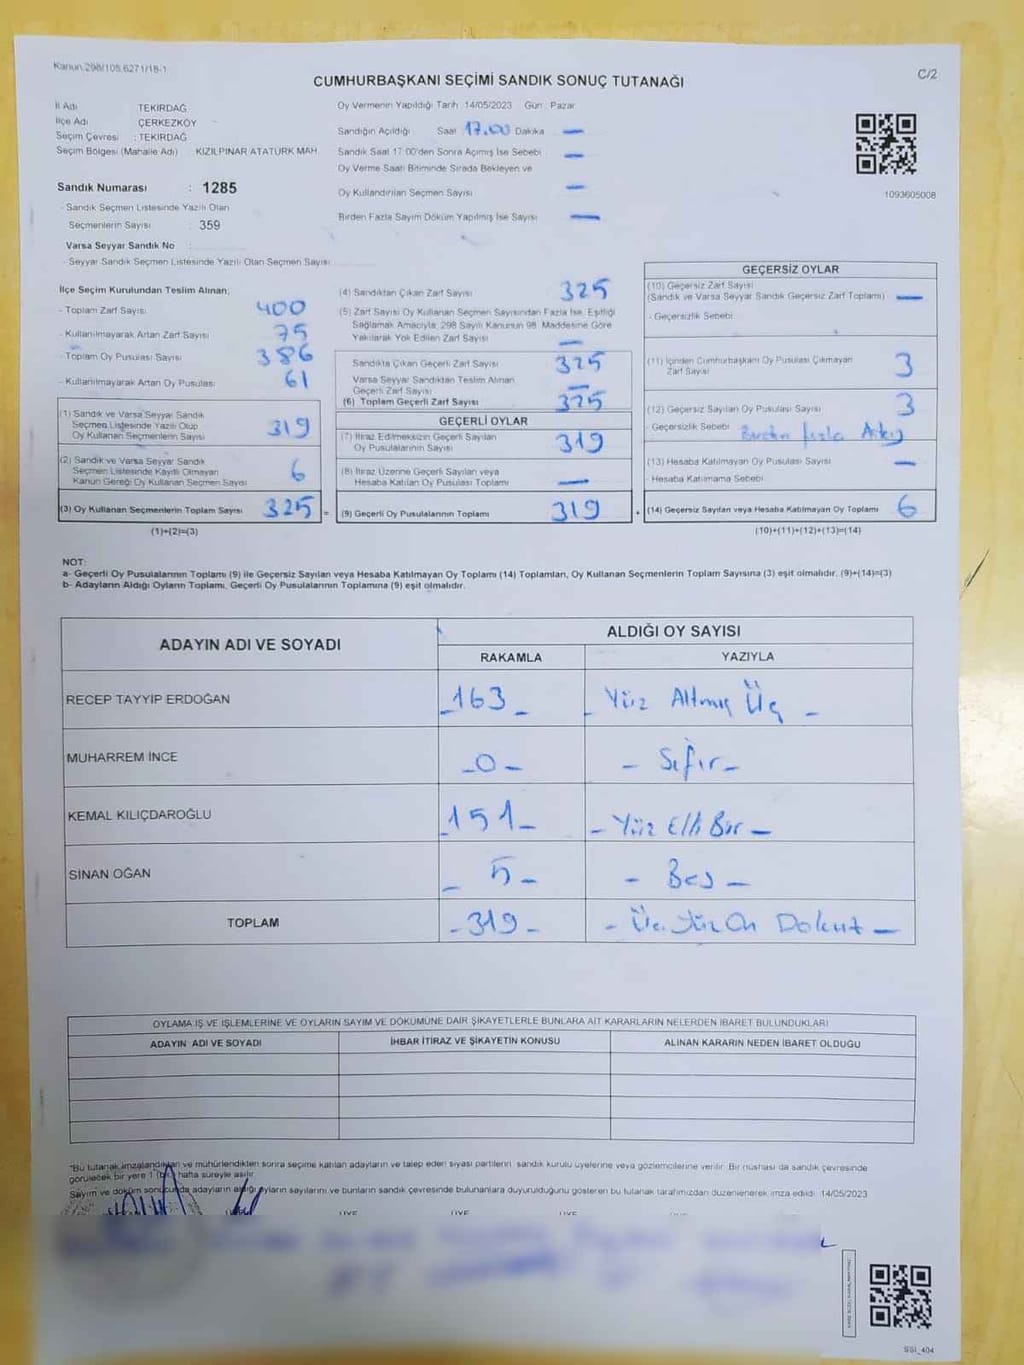 Kanun.298/105,6271/18-1
C/2
CUMHURBAŞKANI SEÇİMİ SANDIK SONUÇ TUTANAĞI
İl Adı TEKİRDAĞ
İlçe Adı ÇERKEZKÖY
Seçim Çevresi : TEKİRDAĞ
Seçim Bölgesi (Mahalle Adı) KIZILPINAR ATATÜRK MAH.
Sandık Numarası : 1285
- Sandık Seçmen Listesinde Yazılı Olan
Seçmenlerin Sayısı : 359
Varsa Seyyar Sandık No :
- Seyyar Sandık Seçmen Listesinde Yazılı Olan Seçmen Sayısı
Oy Vermenin Yapıldığı Tarih :14/05/2023 Gün : Pazar
Sandığın Açıldığı Saat 17.00 Dakika —
Sandık Saat 17:00'den Sonra Açımış İse Sebebi —
Oy Verme Saati Bitiminde Sırada Bekleyen ve
Oy Kullandırılan Seçmen Sayısı —
Birden Fazla Sayım Döküm Yapılmış İse Sayısı —
1093605008
İlçe Seçim Kurulundan Teslim Alınan;
- Toplam Zarf Sayısı 400
- Kullanılmayarak Artan Zarf Sayısı 75
- Toplam Oy Pusulası Sayısı 386
- Kullanılmayarak Artan Oy Pusulası 61
(1) Sandık ve Varsa Seyyar Sandık
Seçmen Listesinde Yazılı Olup
Oy Kullanan Seçmenlerin Sayısı 319
(2) Sandık ve Varsa Seyyar Sandık
Seçmen Listesinde Kayıtlı Olmayan
Kanun Gereği Oy Kullanan Seçmen Sayısı 6
(3) Oy Kullanan Seçmenlerin Toplam Sayısı 325 =
(1)+(2)=(3)
(4) Sandıktan Çıkan Zarf Sayısı 325
(5) Zarf Sayısı Oy Kullanan Seçmen Sayısından Fazla İse, Eşitliği
Sağlamak Amacıyla, 298 Sayılı Kanunun 98. Maddesine Göre
Yakılarak Yok Edilen Zarf Sayısı —
Sandıkta Çıkan Geçerli Zarf Sayısı 325
Varsa Seyyar Sandıktan Teslim Alınan
Geçerli Zarf Sayısı —
(6) Toplam Geçerli Zarf Sayısı 325
GEÇERLİ OYLAR
(7) İtiraz Edilmeksizin Geçerli Sayılan
Oy Pusulalarının Sayısı 319
(8) İtiraz Üzerine Geçerli Sayılan veya
Hesaba Katılan Oy Pusulası Toplamı —
(9) Geçerli Oy Pusulalarının Toplamı 319 +
GEÇERSİZ OYLAR
(10) Geçersiz Zarf Sayısı
(Sandık ve Varsa Seyyar Sandık Geçersiz Zarf Toplamı) —
- Geçersizlik Sebebi
(11) İçinden Cumhurbaşkanı Oy Pusulası Çıkmayan
Zarf Sayısı 3
(12) Geçersiz Sayılan Oy Pusulası Sayısı 3
- Geçersizlik Sebebi Birden fazla
(13) Hesaba Katılmayan Oy Pusulası Sayısı —
- Hesaba Katılmama Sebebi
(14) Geçersiz Sayılan veya Hesaba Katılmayan Oy Toplamı 6
(10)+(11)+(12)+(13)=(14)
NOT:
a- Geçerli Oy Pusulalarının Toplamı (9) ile Geçersiz Sayılan veya Hesaba Katılmayan Oy Toplamı (14) Toplamları, Oy Kullanan Seçmenlerin Toplam Sayısına (3) eşit olmalıdır. (9)+(14)=(3)
b- Adayların Aldığı Oyların Toplamı, Geçerli Oy Pusulalarının Toplamına (9) eşit olmalıdır.
ADAYIN ADI VE SOYADI
ALDIĞI OY SAYISI
RAKAMLA YAZIYLA
RECEP TAYYİP ERDOĞAN -163- - Yüz Altmış Üç -
MUHARREM İNCE -0- - Sıfır -
KEMAL KILIÇDAROĞLU -151- - Yüz Elli Bir -
SİNAN OĞAN - 5 - - Beş -
TOPLAM -319- - Üç Yüz On Dokuz -
OYLAMA İŞ VE İŞLEMLERİNE VE OYLARIN SAYIM VE DÖKÜMÜNE DAİR ŞİKAYETLERLE BUNLARA AİT KARARLARIN NELERDEN İBARET BULUNDUKLARI
ADAYIN ADI VE SOYADI İHBAR İTİRAZ VE ŞİKAYETİN KONUSU ALINAN KARARIN NEDEN İBARET OLDUĞU
"Bu tutanak imzalandıktan ve mühürlendikten sonra seçime katılan adayların ve talep eden siyasi partilerin sandık kurulu üyelerine veya gözlemcilerine verilir. Bir nüshası da sandık çevresinde
görülecek bir yere 1 (bir) hafta süreyle asılır.
Sayım ve döküm sonucunda adayların aldığı oyların sayılarını ve bunların sandık çevresinde bulunanlara duyurulduğunu gösteren bu tutanak tarafımızdan düzenlenerek imza edildi. 14/05/2023
ÜYE ÜYE ÜYE ÜYE
SSI_404